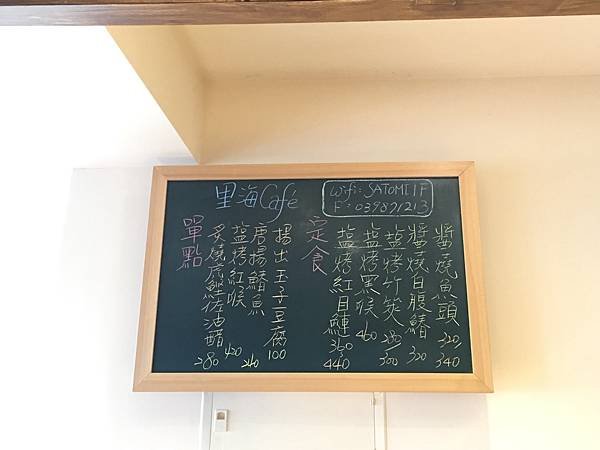 里海Café
Wifi: SATOMI1F
F: 039871213
定食
醬燒魚頭 320 340
醬燒白腹鰆 320
塩烤竹筴 280 300
塩烤黑喉 460
塩烤紅目鰱 360 440
單點
揚出玉子豆腐 100
唐揚魚 240
塩烤紅喉 420
炙燒虎鰹佐油醋 280